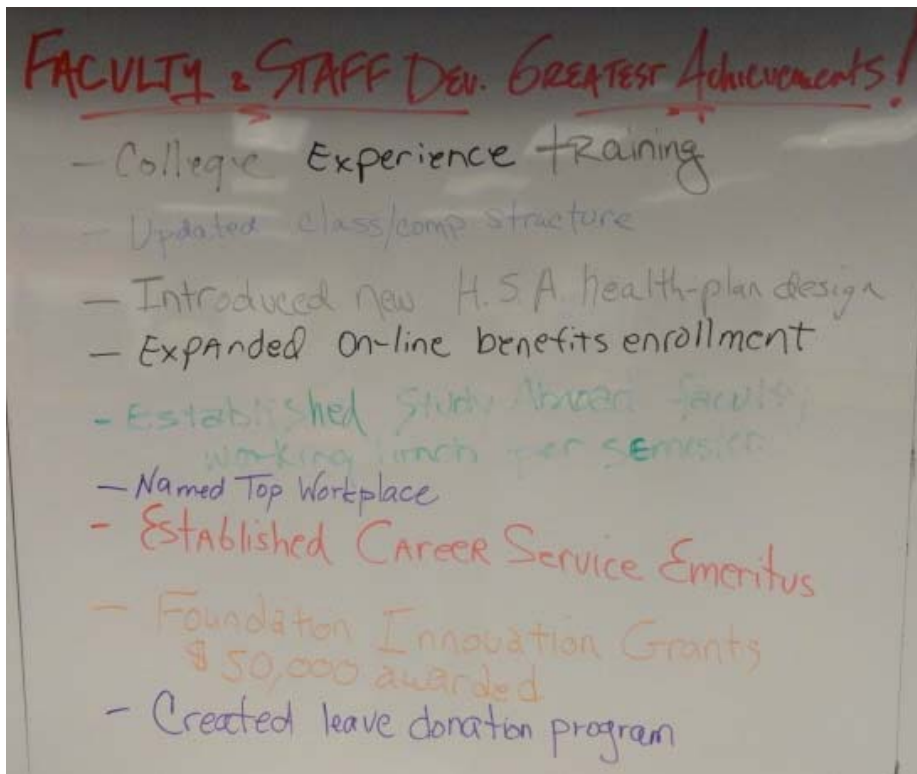 FACULTY & STAFF DEV. GREATEST Achievements!
- College Experience training
- Updated class/comp structure
- Introduced new H.S.A. health-plan design
- Expanded on-line benefits enrollment
- Established Study Abroad faculty
working lunch per semester
- Named Top Workplace
- Established Career Service Emeritus
- Foundation Innovation Grants
$50,000 awarded
- Created leave donation program